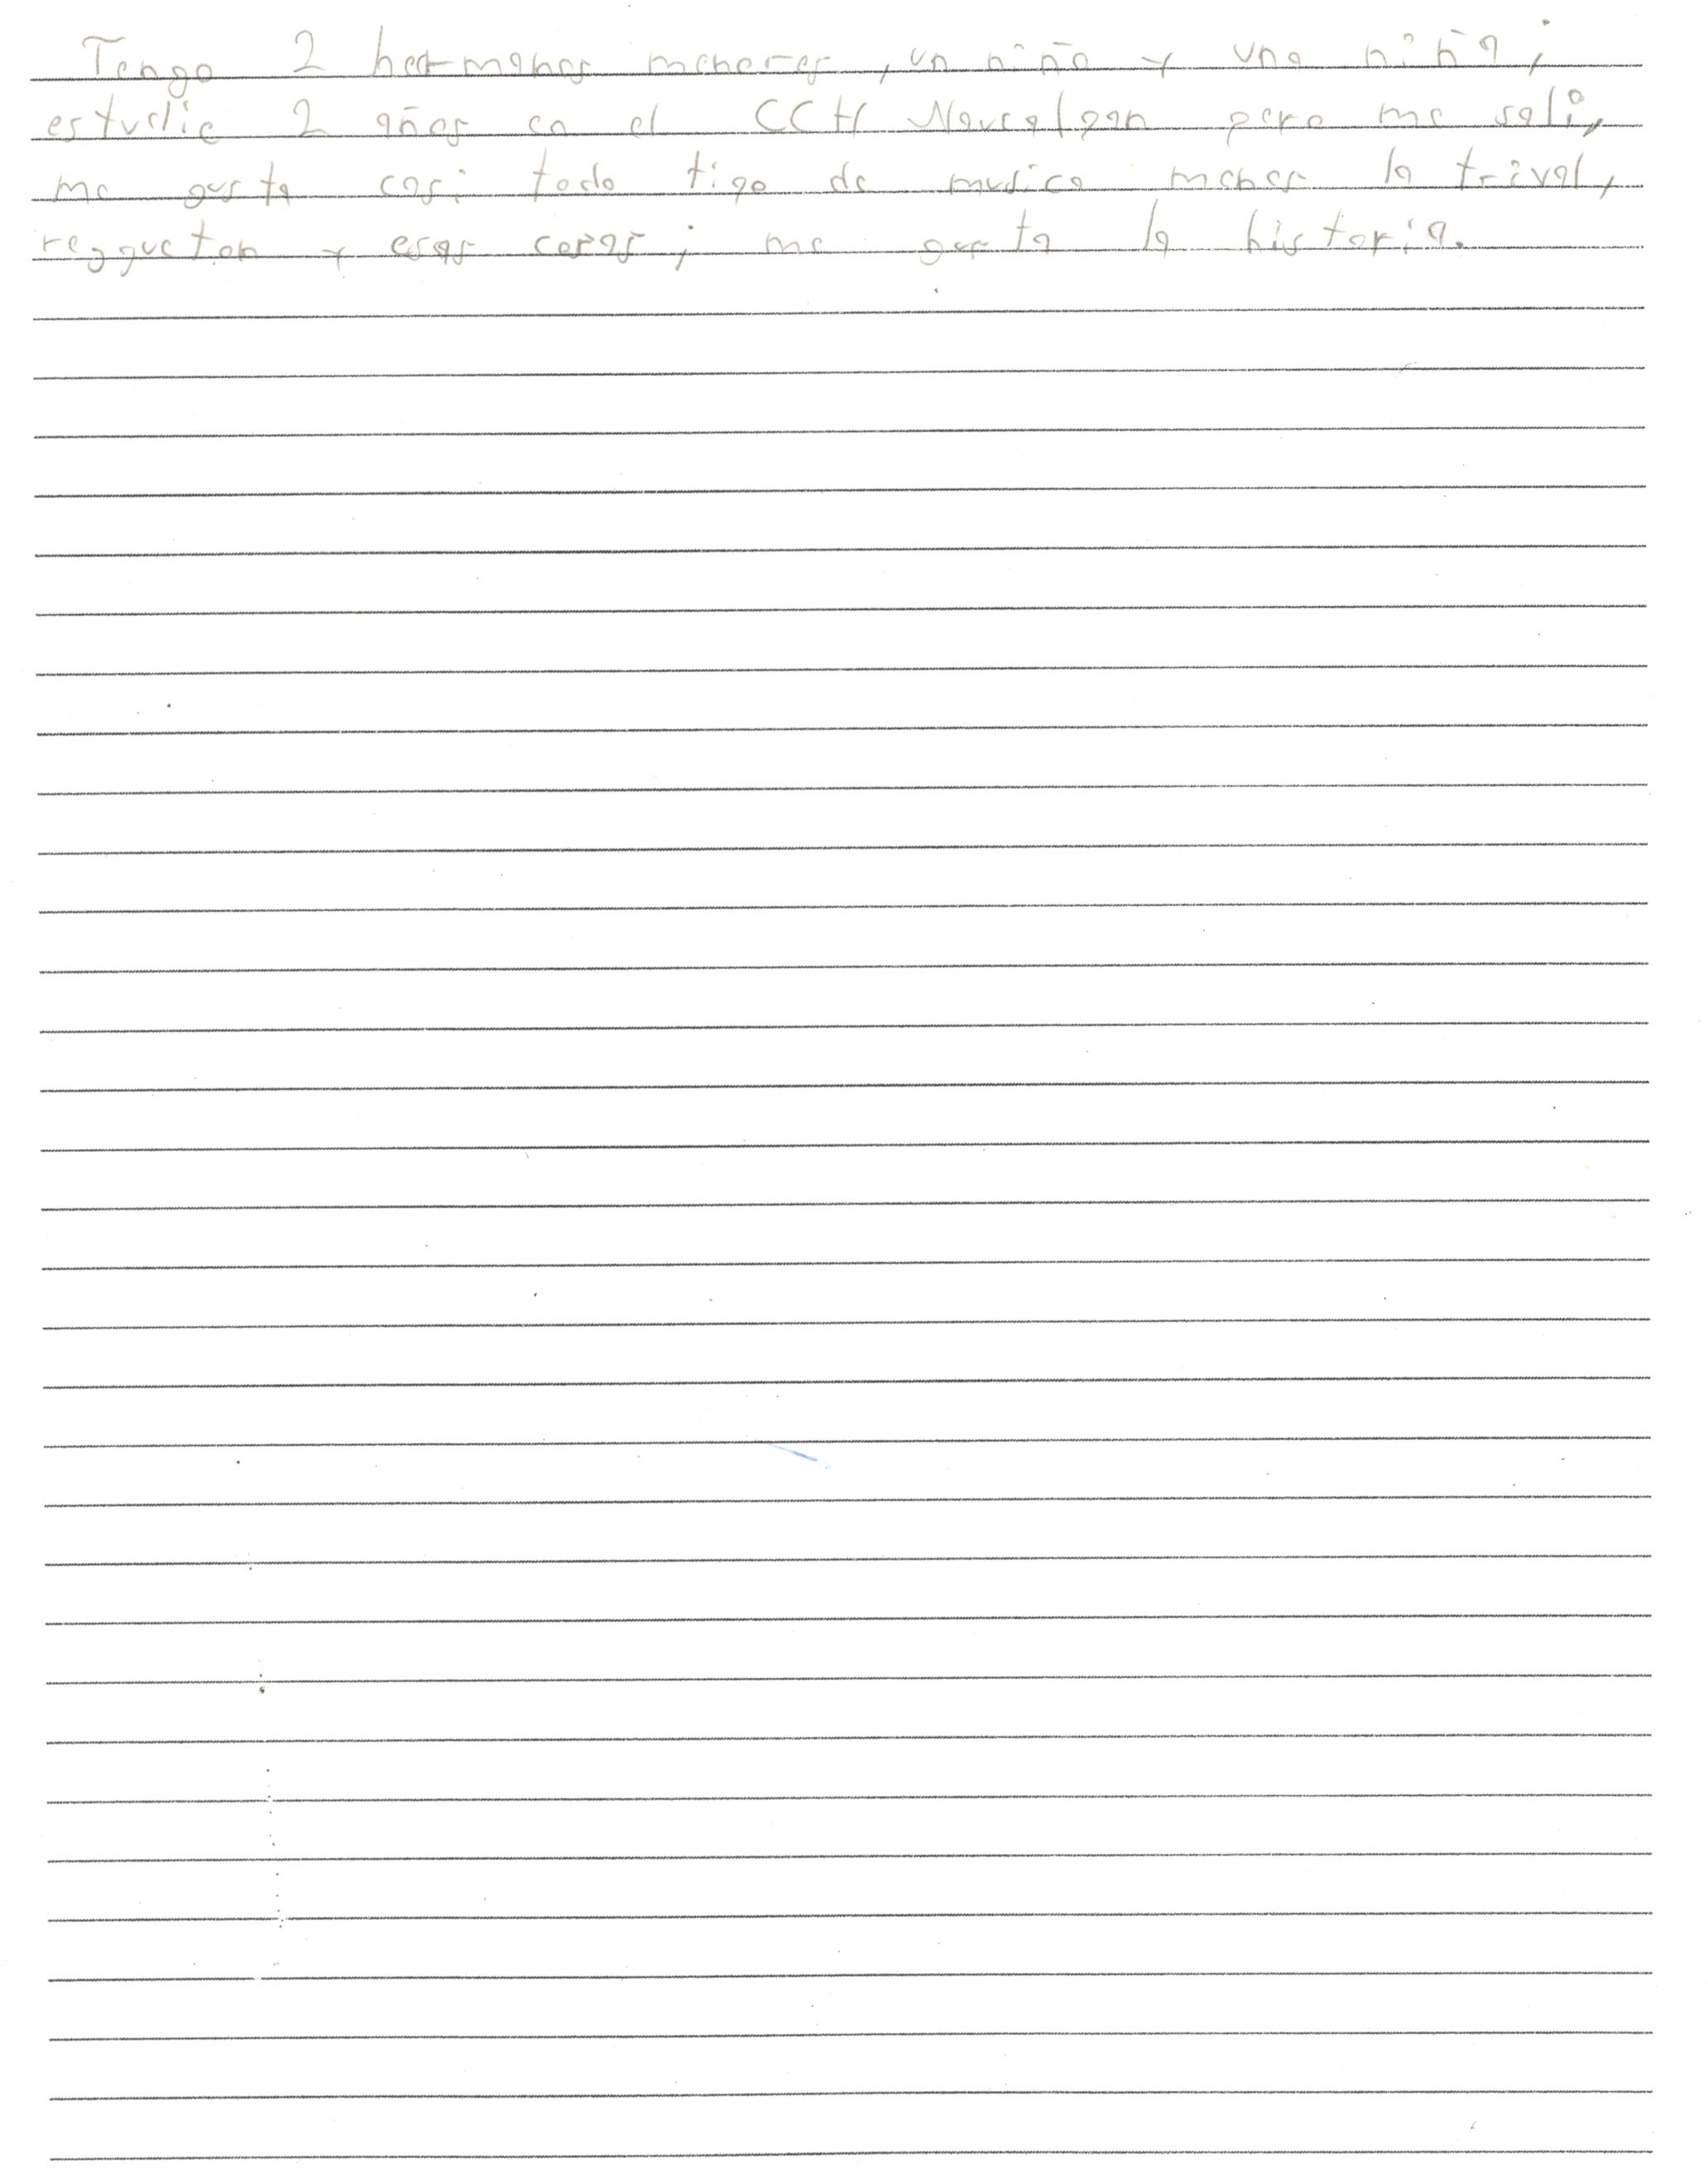 Tengo 2 hermanos menores, un niño y una niña;
estudie 2 años en el CCH Naucalpan pero me sali,
me gusta casi todo tipo de musica menos la trival,
reggueton y esas cosas; me gusta la historia.